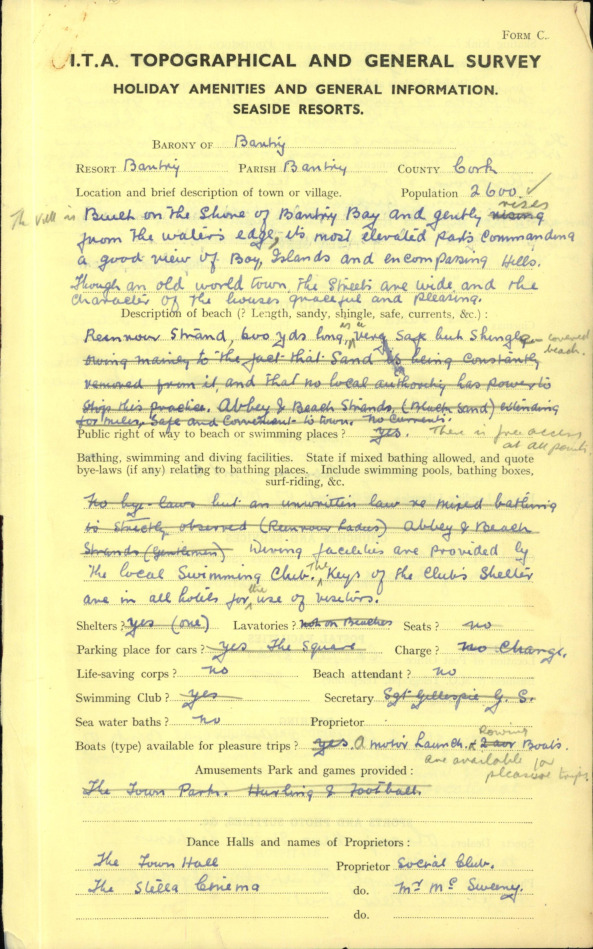 FORM C.
I.T.A. TOPOGRAPHICAL AND GENERAL SURVEY
HOLIDAY AMENITIES AND GENERAL INFORMATION.
SEASIDE RESORTS.
BARONY OF Bantry
RESORT Bantry PARISH Bantry COUNTY Cork
Location and brief description of town or village. Population 2600 ✓
The vill is Built on the Shore of Bantry Bay and gently rising rises
from the water's edge, its most elevated parts commanding
a good view of Bay, Islands and encompassing Hills.
Though an old world town, the streets are wide and the
character of the houses graceful and pleasing.
Description of beach (? Length, sandy, shingle, safe, currents, &c.) :
Reenrour Strand, 600 yds long, is a very safe but Shingle covered beach.
owing mainly to the fact that Sand is being constantly
removed from it, and that no local authority has power to
stop this practice. Abbey & Beach Strands, (Black Sand) extending
for miles, Safe and Convenient to town. No Currents.
Public right of way to beach or swimming places ? yes. There is free access
at all points.
Bathing, swimming and diving facilities. State if mixed bathing allowed, and quote
bye-laws (if any) relating to bathing places. Include swimming pools, bathing boxes,
surf-riding, &c.
No bye-laws but an unwritten law no mixed bathing
is strictly observed (Reenrour Ladies) Abbey & Beach
Strands (Gentlemen) Diving facilities are provided by
the local Swimming Club. The Keys of the Club's Shelter
are in all hotels for the use of visitors.
Shelters ? yes (one) Lavatories ? not on Beaches Seats ? no
Parking place for cars ? yes The Square Charge ? no Charge.
Life-saving corps ? no Beach attendant ? no
Swimming Club ? yes Secretary Sgt Gillespie G. S.
Sea water baths ? no Proprietor
Boats (type) available for pleasure trips ? yes. A motor Launch & 2 oar Rowing Boats.
are available for
pleasure trips
Amusements Park and games provided :
The Town Park. Hurling & Football
Dance Halls and names of Proprietors :
The Town Hall Proprietor Social Club.
The Stella Cinema do. Mr Mc Sweeney.
do.